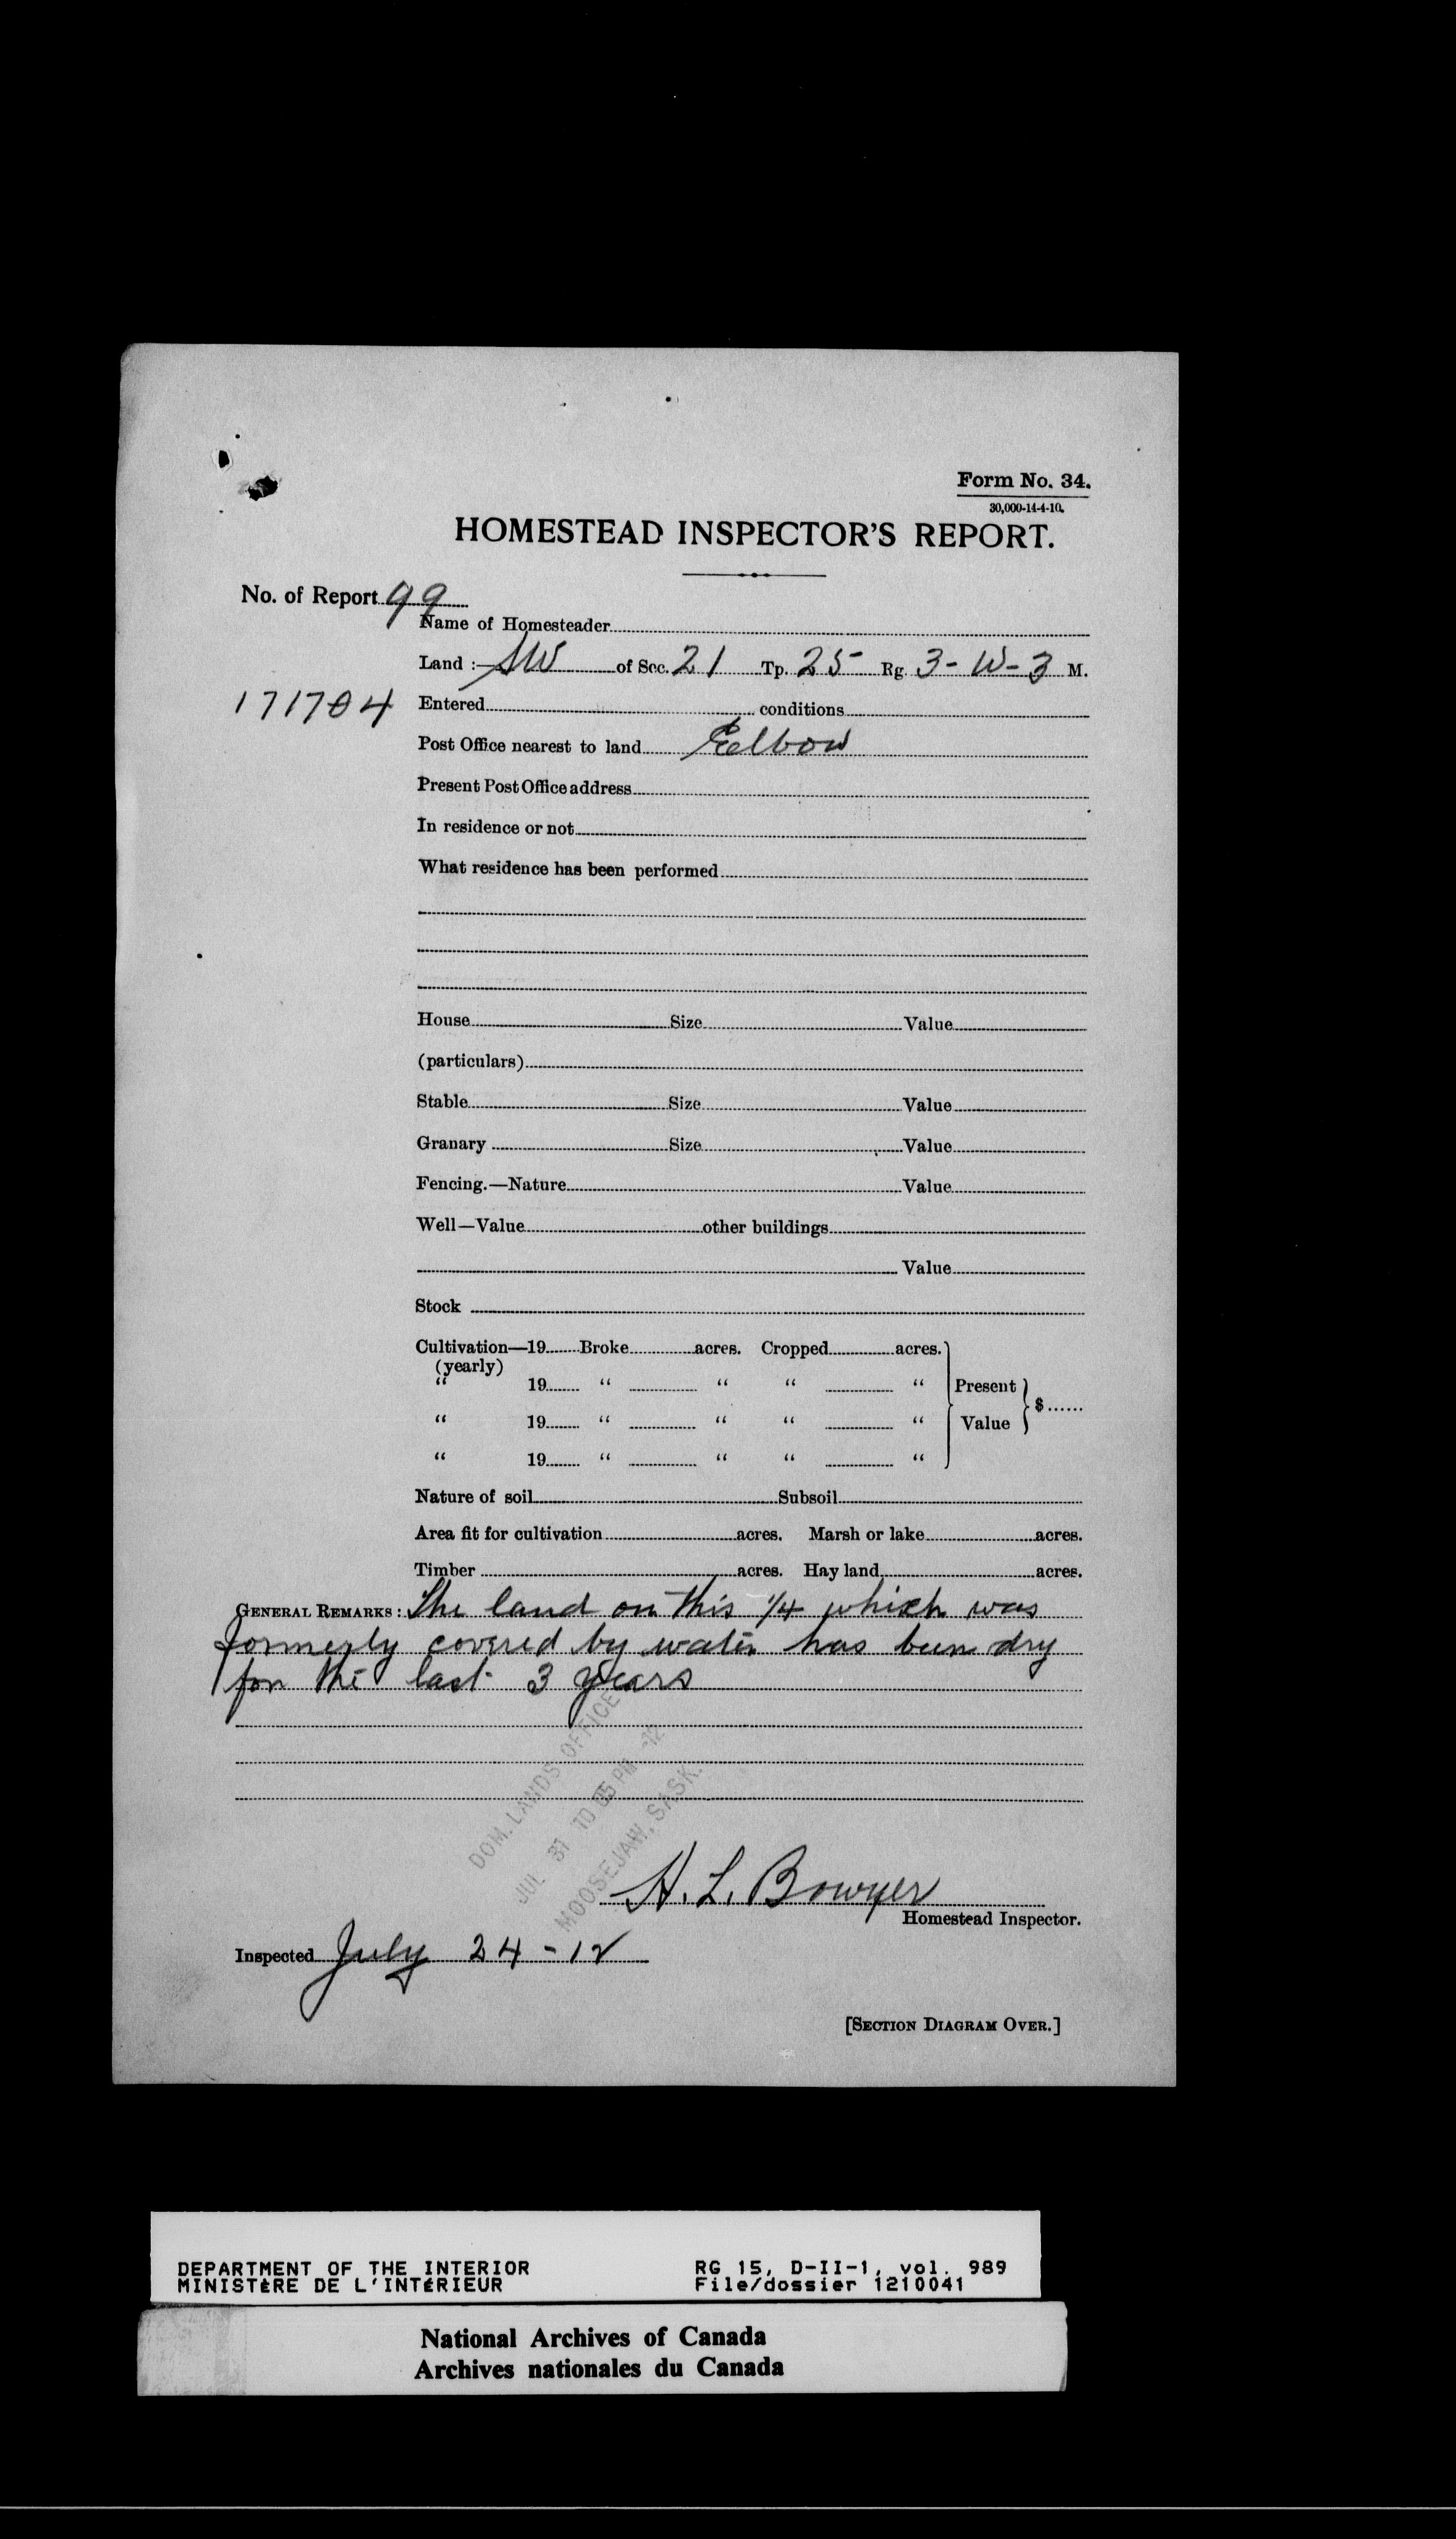 Form No. 34.
30,000-14-4-10.
HOMESTEAD INSPECTOR'S REPORT.
No. of Report 99
Name of Homesteader
Land :— SW of Sec. 21 Tp. 25 Rg. 3 - W - 3 M.
171704 Entered conditions
Post Office nearest to land Elbow
Present Post Office address
In residence or not
What residence has been performed
House Size Value
(particulars)
Stable Size Value
Granary Size Value
Fencing.—Nature Value
Well—Value other buildings
Value
Stock
Cultivation—19 Broke acres. Cropped acres.
(yearly)
“ 19 “ “ “ “ Present
“ 19 “ “ “ “ Value $
“ 19 “ “ “ “
Nature of soil Subsoil
Area fit for cultivation acres. Marsh or lake acres.
Timber acres. Hay land acres.
GENERAL REMARKS: The land on this 1/4 which was
formerly covered by water has been dry
for the last 3 years
DOM. LANDS OFFICE
JUL 31 10 05 PM -12
MOOSEJAW, SASK.
H. L. Bowyer
Homestead Inspector.
Inspected July 24 - 12
[SECTION DIAGRAM OVER.]
DEPARTMENT OF THE INTERIOR RG 15, D-II-1, vol. 989
MINISTÈRE DE L'INTÉRIEUR File/dossier 1210041
National Archives of Canada
Archives nationales du Canada